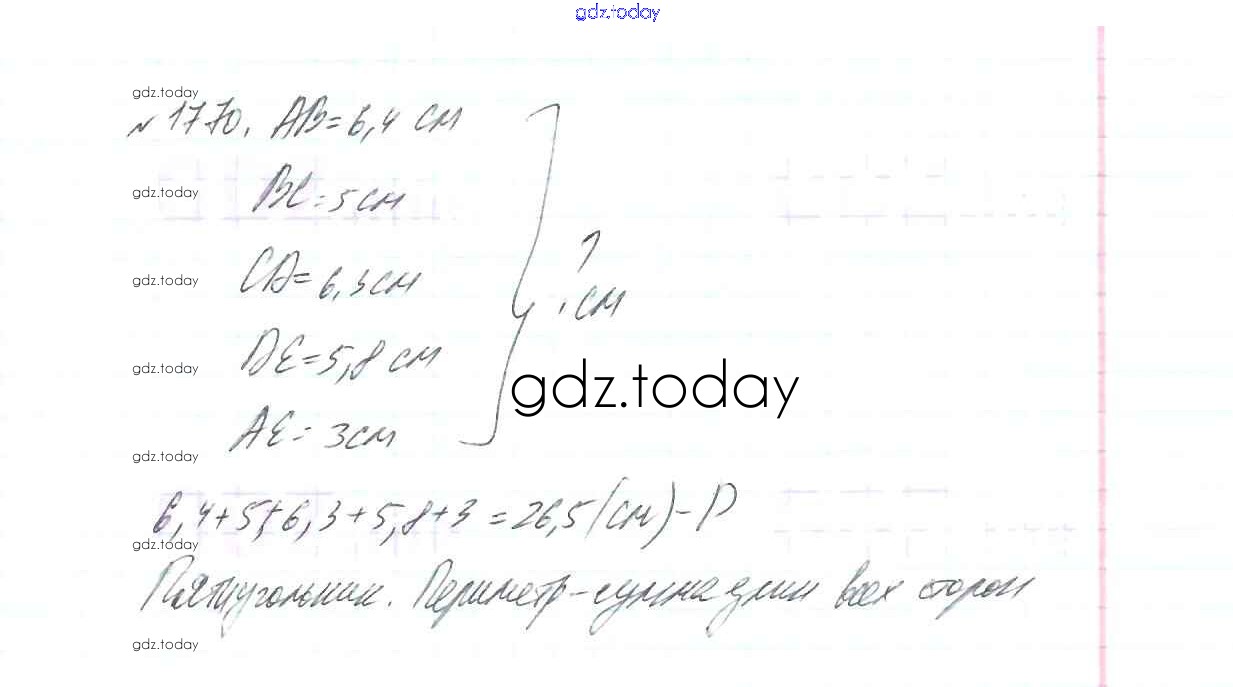 gdz.today
gdz.today
№1770. AB=6,4 см
gdz.today
BC=5см
? см
gdz.today
CD=6,3см
gdz.today
DE=5,8 см
gdz.today
AE=3см
gdz.today
6,4+5+6,3+5,8+3=26,5(см)-P
gdz.today
Пятиугольник. Периметр-сумма длин всех сторон
gdz.today